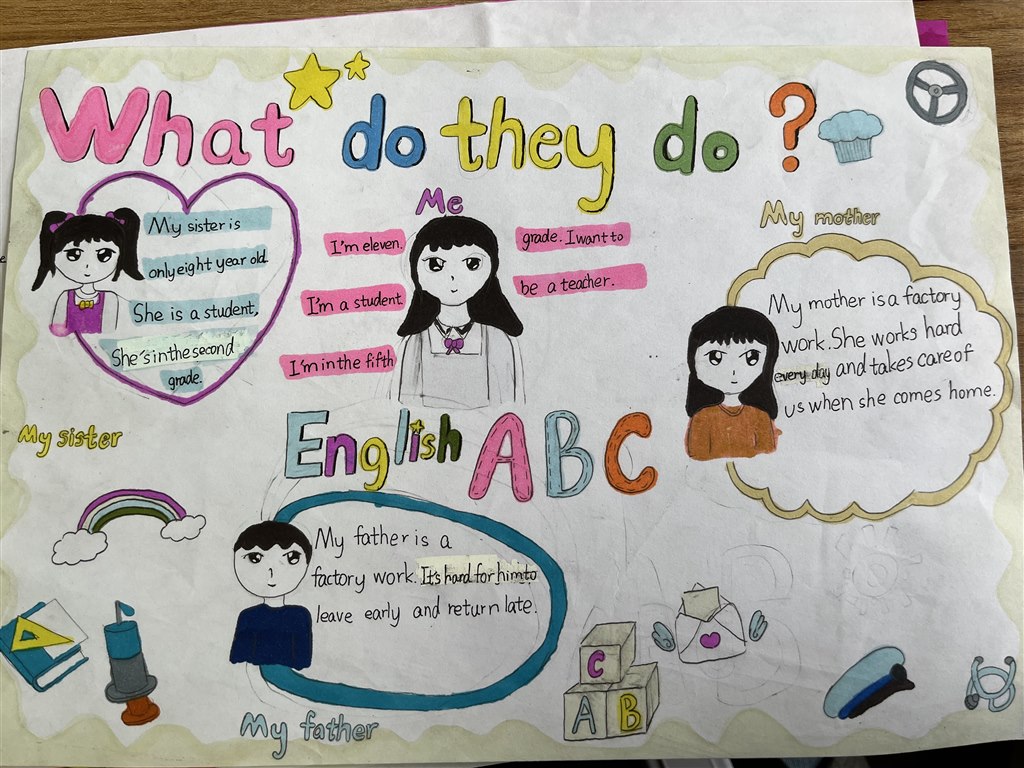 What do they do?
My sister is
only eight year old.
She is a student,
She's in the second
grade.
My sister
Me
I'm eleven.
I'm a student
I'm in the fifth
grade. I want to
be a teacher.
My mother
My mother is a factory
work. She works hard
every day and takes care of
us when she comes home.
English ABC
My father is a
factory work. It's hard for him to
leave early and return late.
My father
C
A B